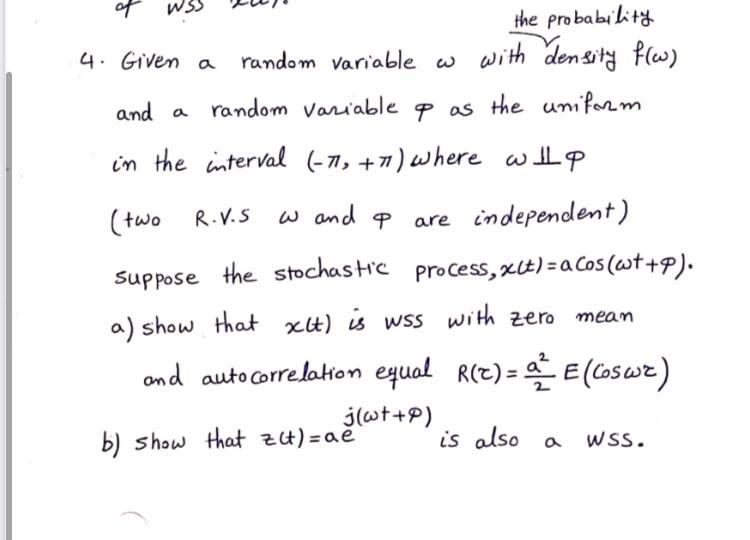 of WSS
the probability
4. Given a random variable ω with density f(ω)
and a random variable φ as the uniform
in the interval (-π, +π) where ω ⫫ φ
(two R.V.S ω and φ are independent)
suppose the stochastic process, x(t) = a cos(ωt+φ).
a) show that x(t) is WSS with zero mean
and autocorrelation equal R(τ) = a²/2 E(cosωτ)
b) show that z(t) = ae^j(ωt+φ) is also a WSS.